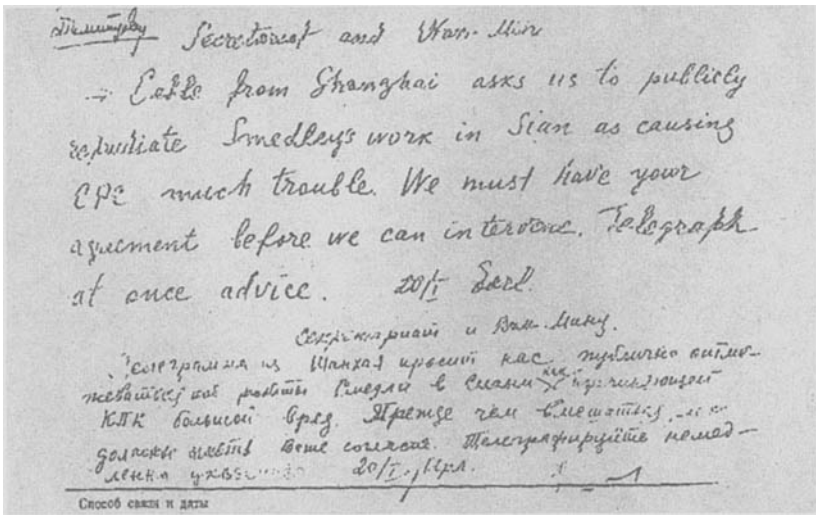 Secretariat and Wan-Min
Cable from Shanghai asks us to publicly
repudiate Smedley's work in Sian as causing
CPC much trouble. We must have your
agreement before we can intervene. Telegraph
at once advice. 20/I Earl.
Секретариат и Ван-Мину.
Телеграмма из Шанхая просит нас публично отме-
жеваться от работы Смедли в Сиани причиняющей
КПК большой вред. Прежде чем вмешаться
должны иметь Ваше согласие. Телеграфируйте немед-
ленно 20/I. Ирл.
Способ связи и даты